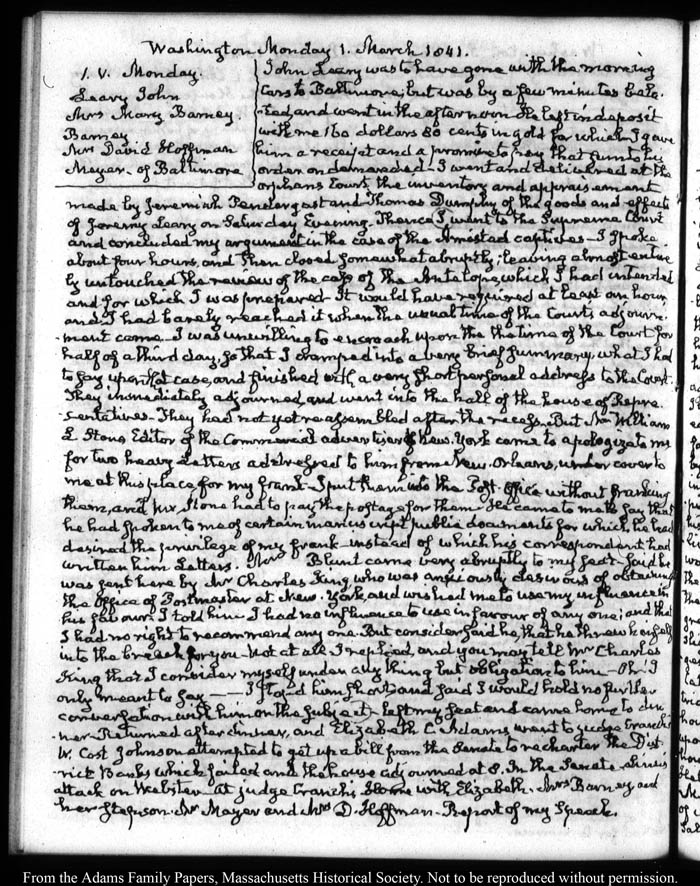 Washington Monday 1. March 1841.
1. V. Monday.
Leary John
Mrs Mary Barney.
Barney
Mrs David Hoffman
Mayer. of Baltimore
John Leary was to have gone with the morning
Cars to Baltimore, but was by a few minutes bela-
-ted, and went in the afternoon. He left in deposit
with me 160 dollars 80 cents in gold for which I gave
him a receipt and a promise to pay that sum to his
order on demand - I went and delivered at the
orphans Court, the inventory and appraisement
made by Jeremiah Pendergast and Thomas Dumphy of the goods and effects
of Jeremy Leary on Saturday Evening. Thence I went to the Supreme Court
and concluded my argument in the case of the Amistad captives - I spoke
about four hours, and then closed somewhat abruptly; leaving almost entire
ly untouched the review of the case of the Antelope, which I had intended
and for which I was prepared - It would have required at least an hour,
and I had barely reached it when the usual time of the Courts adjourn-
-ment came. I was unwilling to encroach upon the the time of the Court for
half of a third day, so that I cramped into a very brief summary, what I had
to say upon that case, and finished with a very short personal address to the Court.
They immediately adjourned, and went into the hall of the house of Repre-
-sentatives - They had not yet reassembled after the recess. But Mr William
L Stone Editor of the Commercial advertiser of New-York came to apologize to me
for two heavy Letters addressed to him from New-Orleans, under cover to
me at this place for my frank - I put them into the Post-Office without franking
them, and Mr Stone had to pay the postage for them - He came to make say that
he had spoken to me of certain manuscript public documents for which he had
desired the privilege of my frank - instead of which his correspondent had
written him Letters. Mr Blunt came very abruptly to my seat - Said he
was sent here by Mr Charles King who was anxiously desirous of obtaining
the Office of Postmaster at New-York, and wished me to use my influence in
his favour. I told him I had no influence to use in favour of any one; and that
I had no right to recommend any one. But consider said he, that he threw himself
into the breach for you - Not at all I replied, and you may tell Mr Charles
King that I consider myself under any thing but obligation to him - Oh! I
only meant to say —— I stop'd him short, and said I would hold no further
conversation with him on the subject - left my seat and came home to din-
-ner - Returned after dinner, and Elizabeth C. Adams went to judge Cranch's
W. Cost Johnson attempted to get up a bill from the Senate to recharter the Dist-
-rict Banks which failed and the house adjourned at 8. In the Senate
attack on Webster - at judge Cranch's Home with Elizabeth. Mrs Barney and
her Stepson Mr Mayer and Mrs D. Hoffman - Report of my Speech.
From the Adams Family Papers, Massachusetts Historical Society. Not to be reproduced without permission.